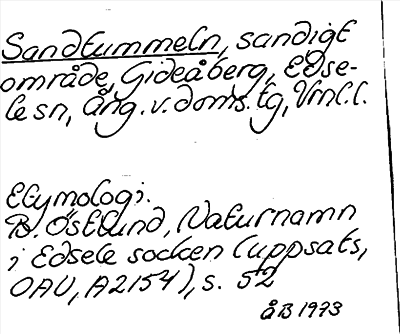 Sandtummeln, sandigt
område, Gideåberg, Edse-
le sn, Ång. v. doms. tg, Vrnl.l.
Etymologi.
B. Östlund, Naturnamn
i Edsele socken (uppsats,
OAU, A2154), s. 52
åB 1973